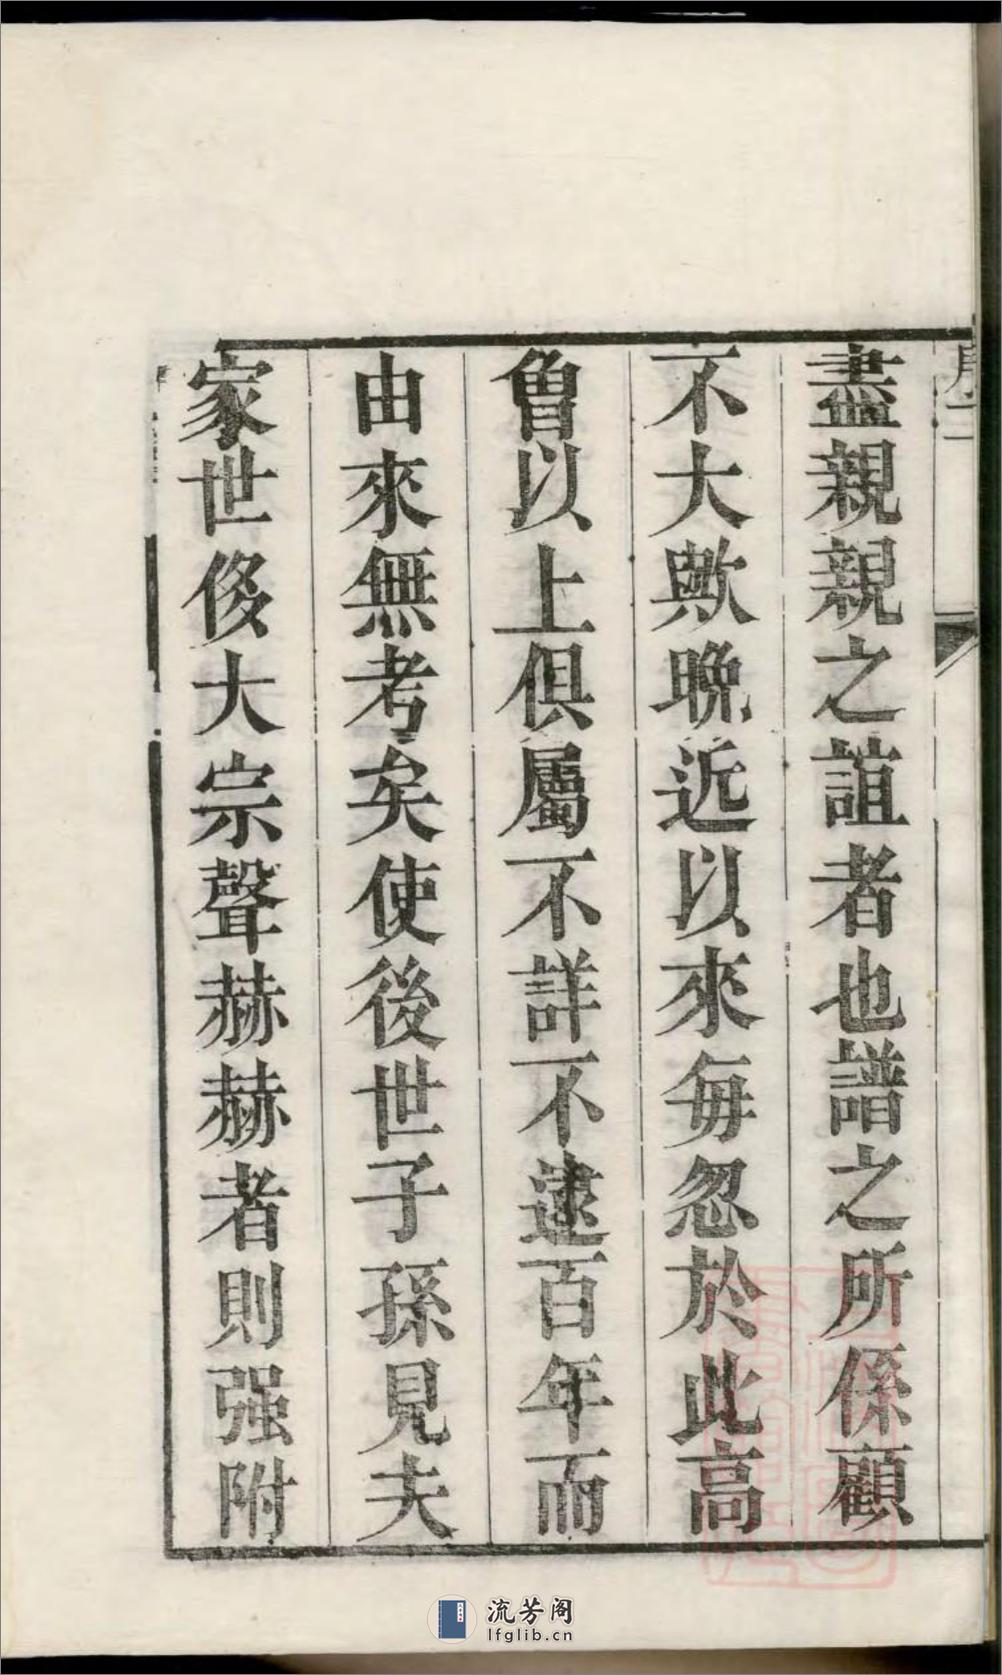 盡親親之誼者也譜之所係顧
不大歟晚近以來每忽於此高
曾以上俱屬不詳不逮百年而
由來無考矣使後世子孫見夫
家世侈大宗聲赫赫者則强附
流芳阁
lfglib.cn